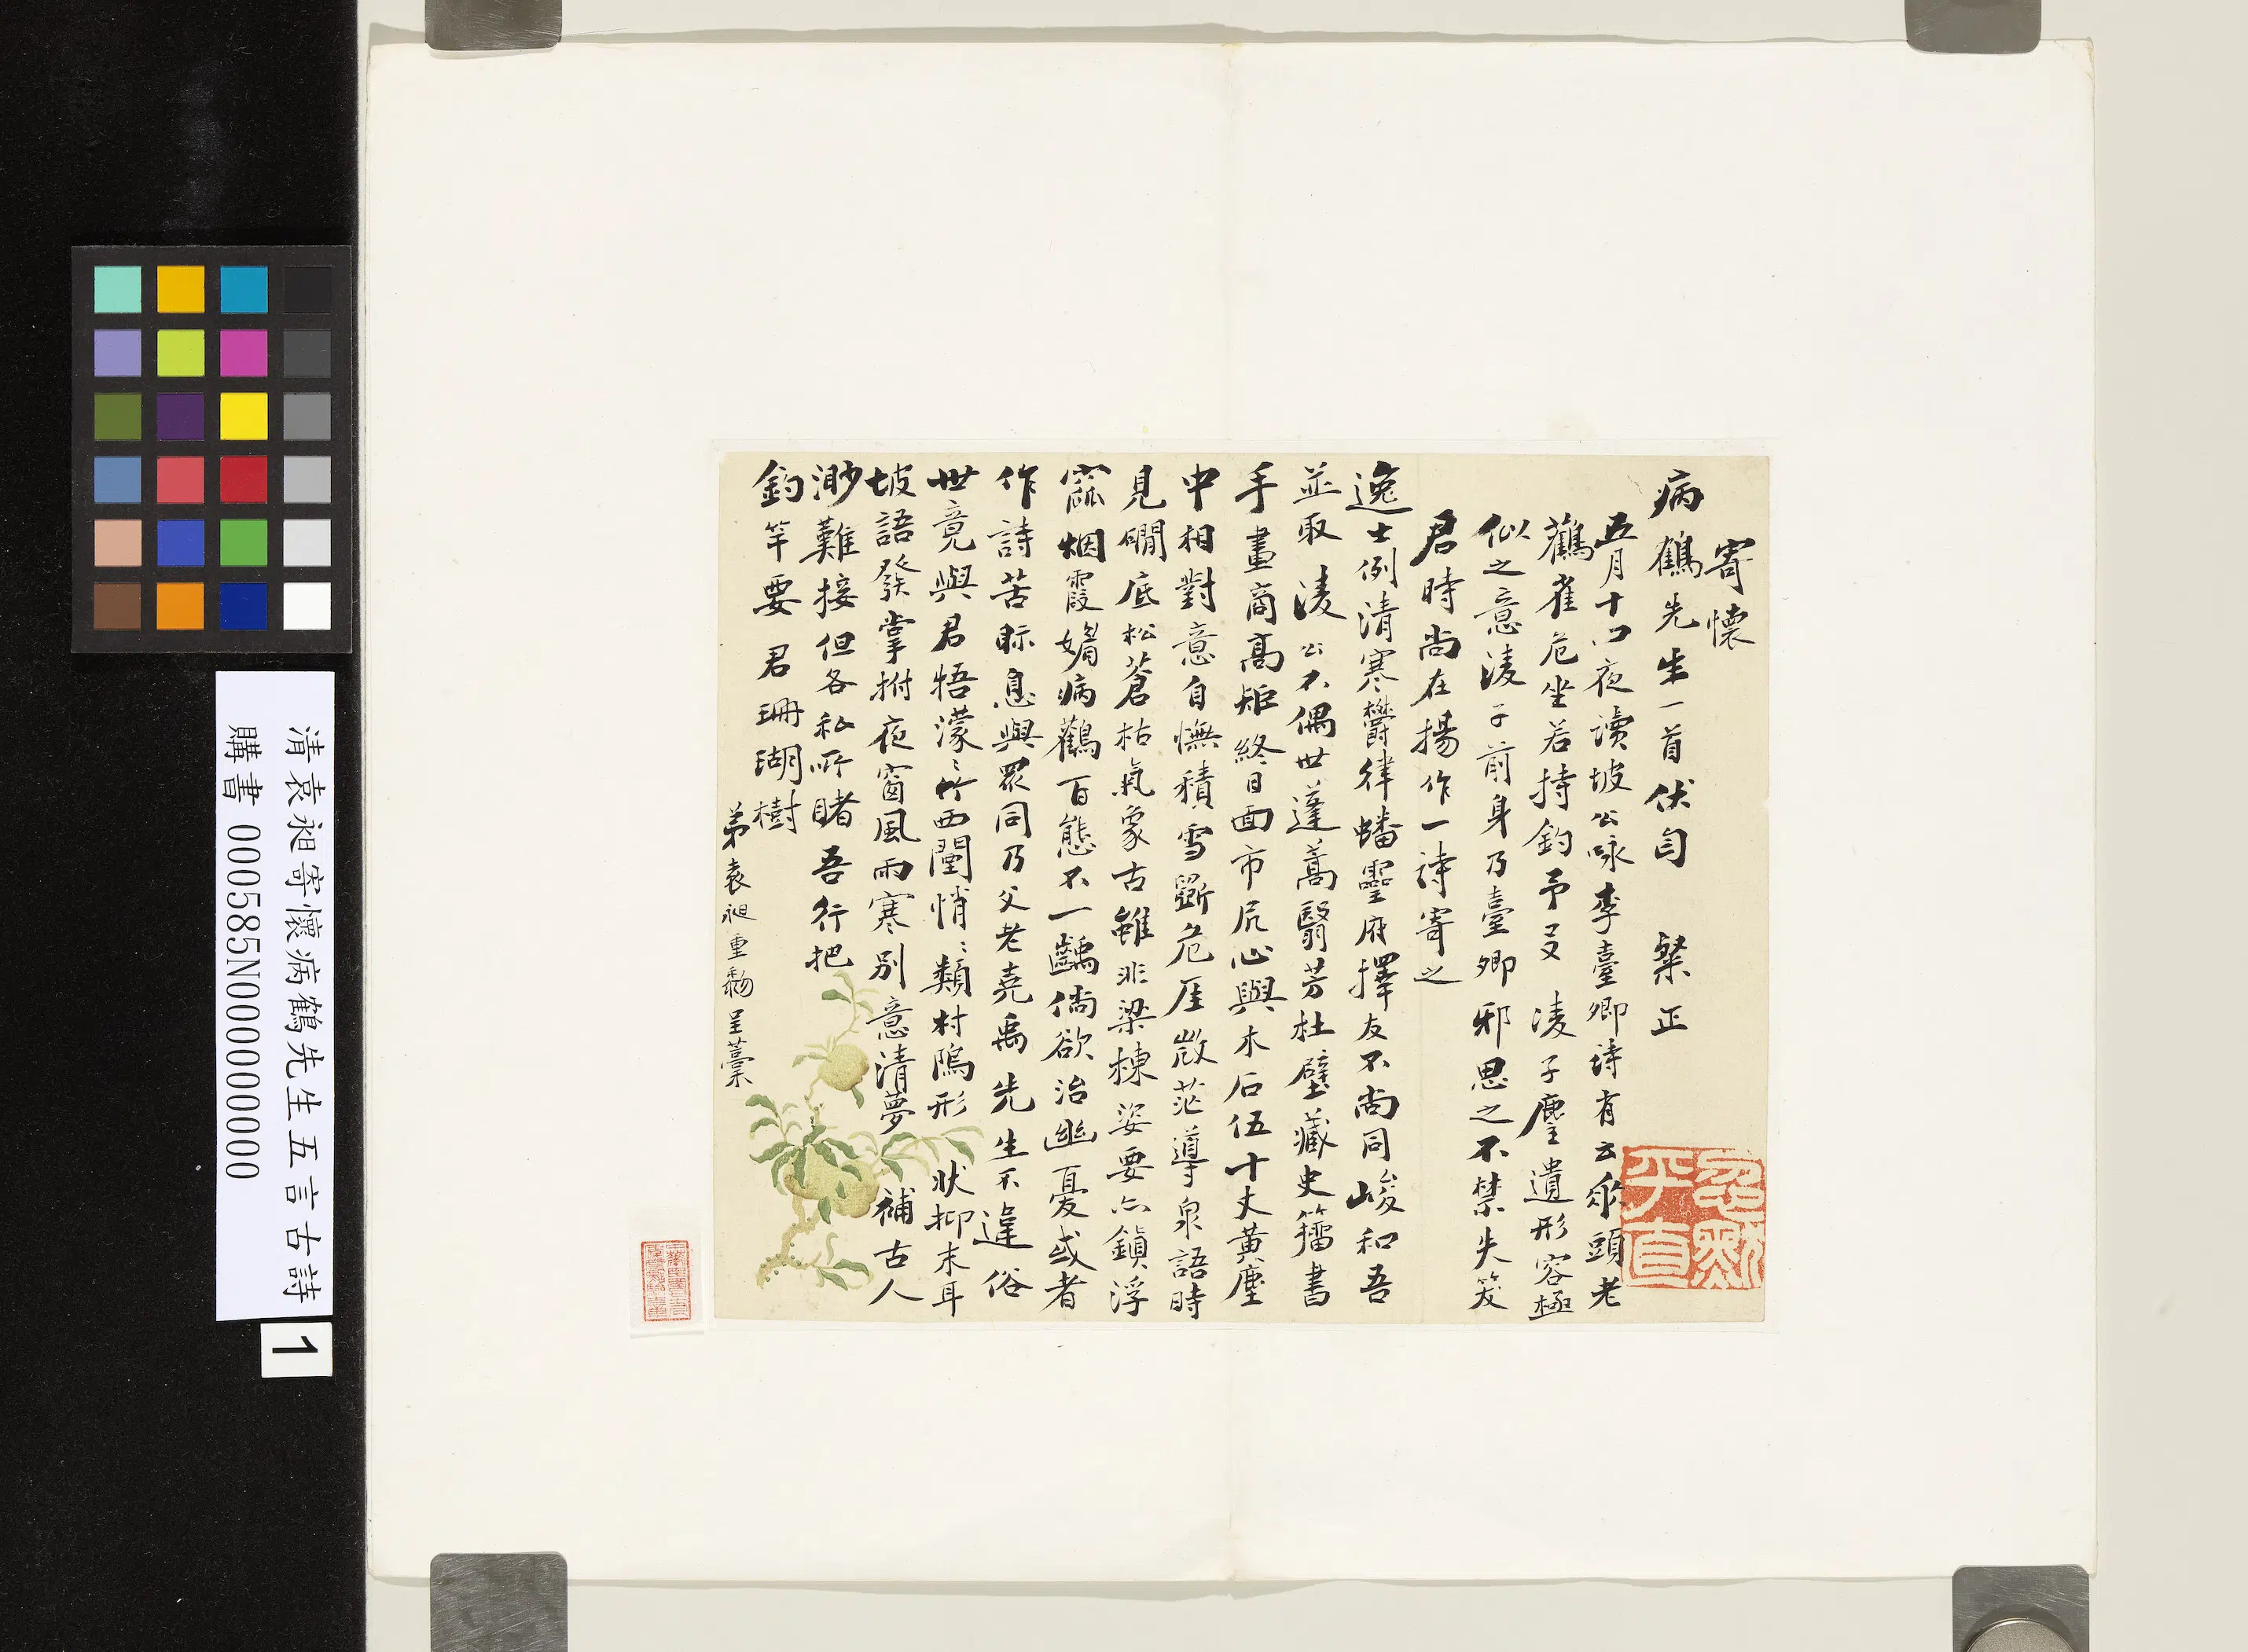 寄懷
病鶴先生一首伏匄　粲正
五月十四夜讀坡公咏李臺卿詩有云垂頭老
鸛雀危坐若持釣予叟　淩子麈遺形容極
似之意淩子前身乃臺卿邪思之不禁失笑
君時尚在揚作一詩寄之
逸士例清寒欝律蟠靈府擇友不尚同峻和吾
並取淩公不偶世蓬蒿翳芳杜壁藏史籀書
手畫商高矩終日面市凥心與木石伍十丈黃塵
中相對意自憮積雪斷危厓微茫導泉語時
見磵底松蒼枯氣象古雖非梁棟姿要亦鎮浮
窳烟霞媚病鸛百態不一齲倘欲治幽憂或者
作詩苦眎息與眾同乃父老堯禹先生不違俗
世竟與君牾濛〻竹西闉悄〻類村隖形狀抑末耳
坡語發掌拊夜窗風雨寒別意清夢補古人
渺難接但各私所睹吾行把
釣竿要君珊瑚樹
弟袁昶重黎呈藁
清袁昶寄懷病鶴先生五言古詩
購書 000585N000000000
1